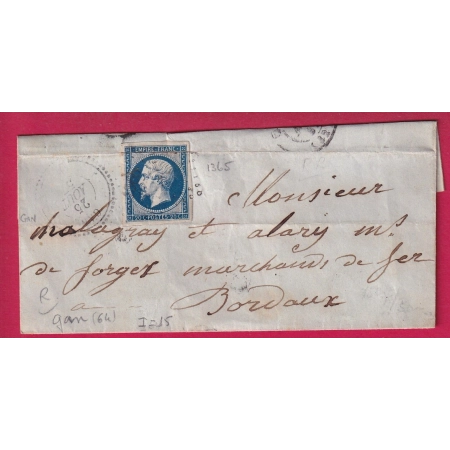 EMPIRE FRANC
20 C. POSTES 20 C.
1365
25
Gan
Monsieur
Malagray et alary mds
de forges marchands de fer
a Bordaux
R
gan (64)
I=15